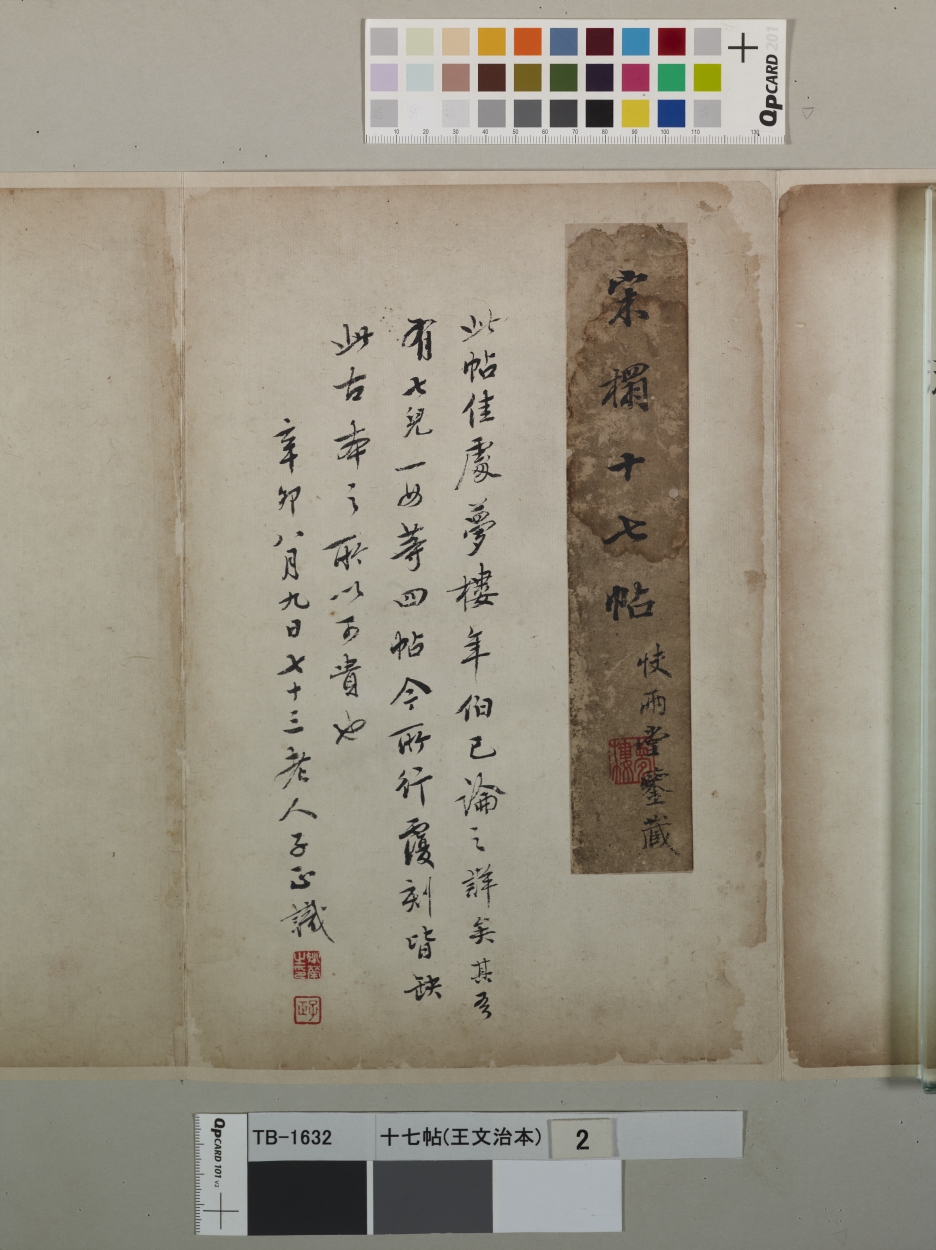 QPCARD 201
10 20 30 40 50 60 70 80 90 100 110 130
宋榻十七帖
快雨堂鑒藏
夢樓
此帖佳處夢樓年伯已論之詳矣其吾
有七兒一女等四帖今所行覆刻皆缺
此古本之所以可貴也
辛卯八月九日七十三老人子正識
子正
QPCARD 101 v3
TB-1632
十七帖(王文治本)
2